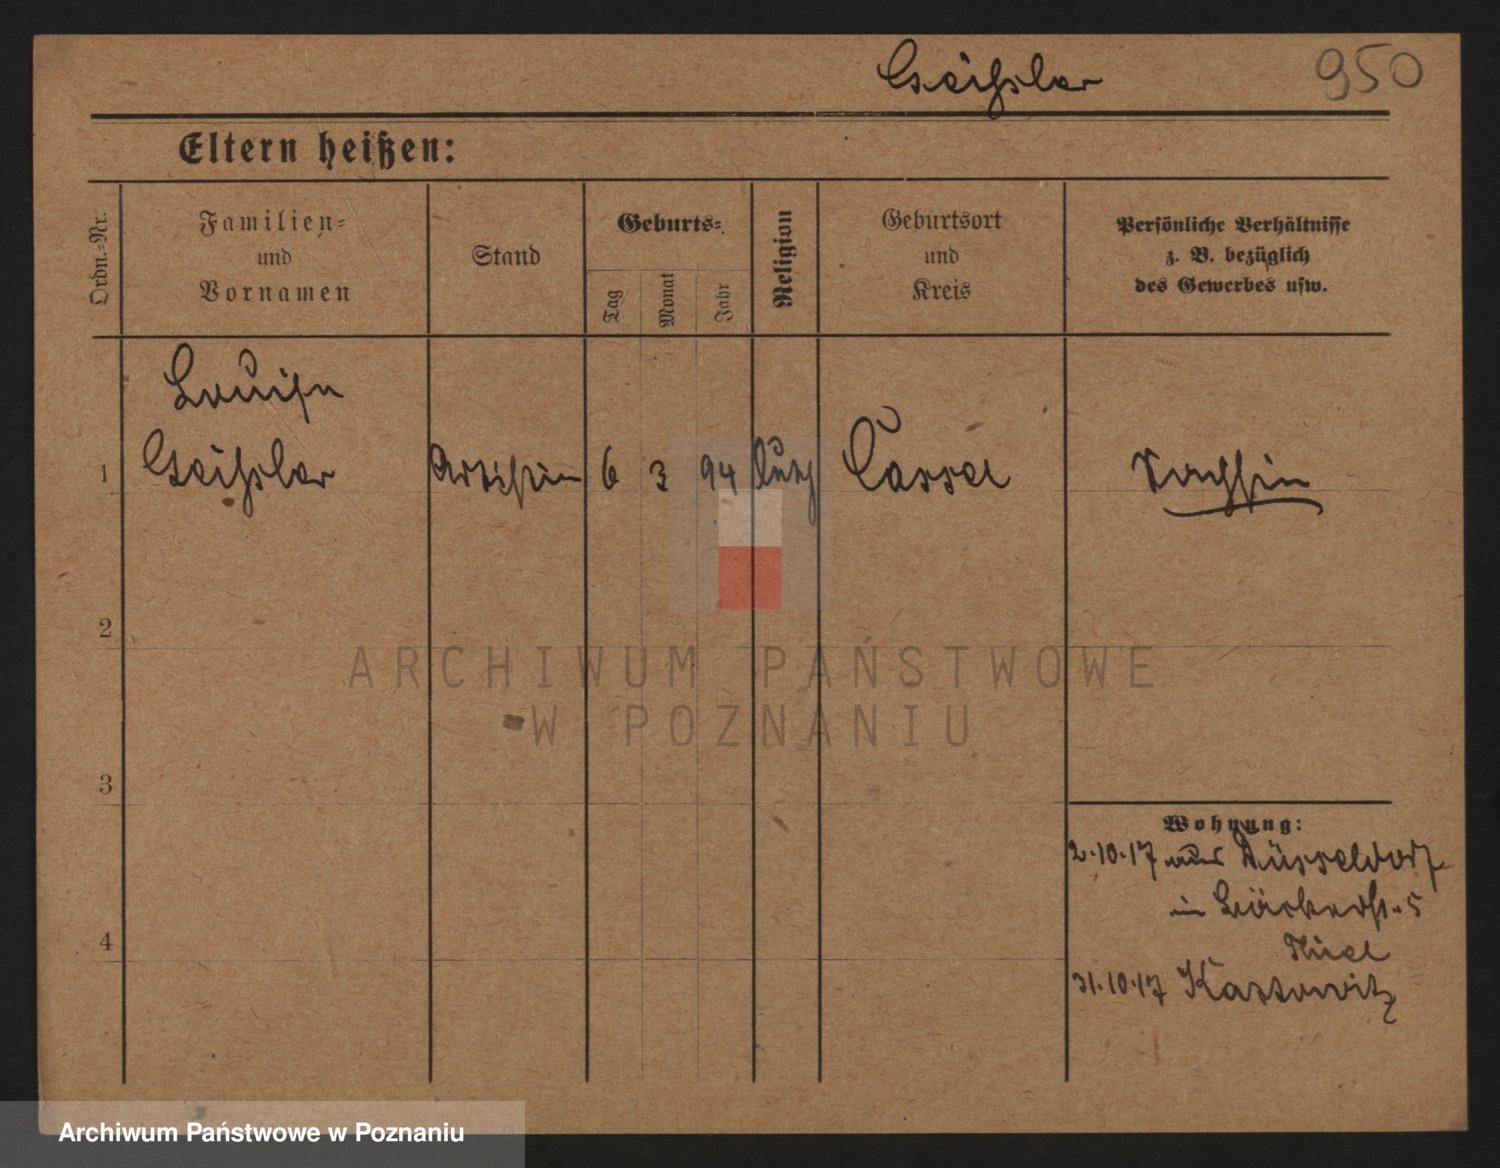 Geissler 950
Eltern heißen:
Ordn.-Nr.
Familien-
und
Vornamen
Stand
Geburts-
Tag
Monat
Jahr
Religion
Geburtsort
und
Kreis
Persönliche Verhältnisse
z. B. bezüglich
des Gewerbes usw.
Louise
1 Geissler Artistin 6 3 94 luth Cassel
2
ARCHIWUM PAŃSTWOWE
W POZNANIU
3
Wohnung:
2.10.17 aus Düsseldorf
in Bäckerstr. 5
4
31.10.17 Kattowitz
Archiwum Państwowe w Poznaniu